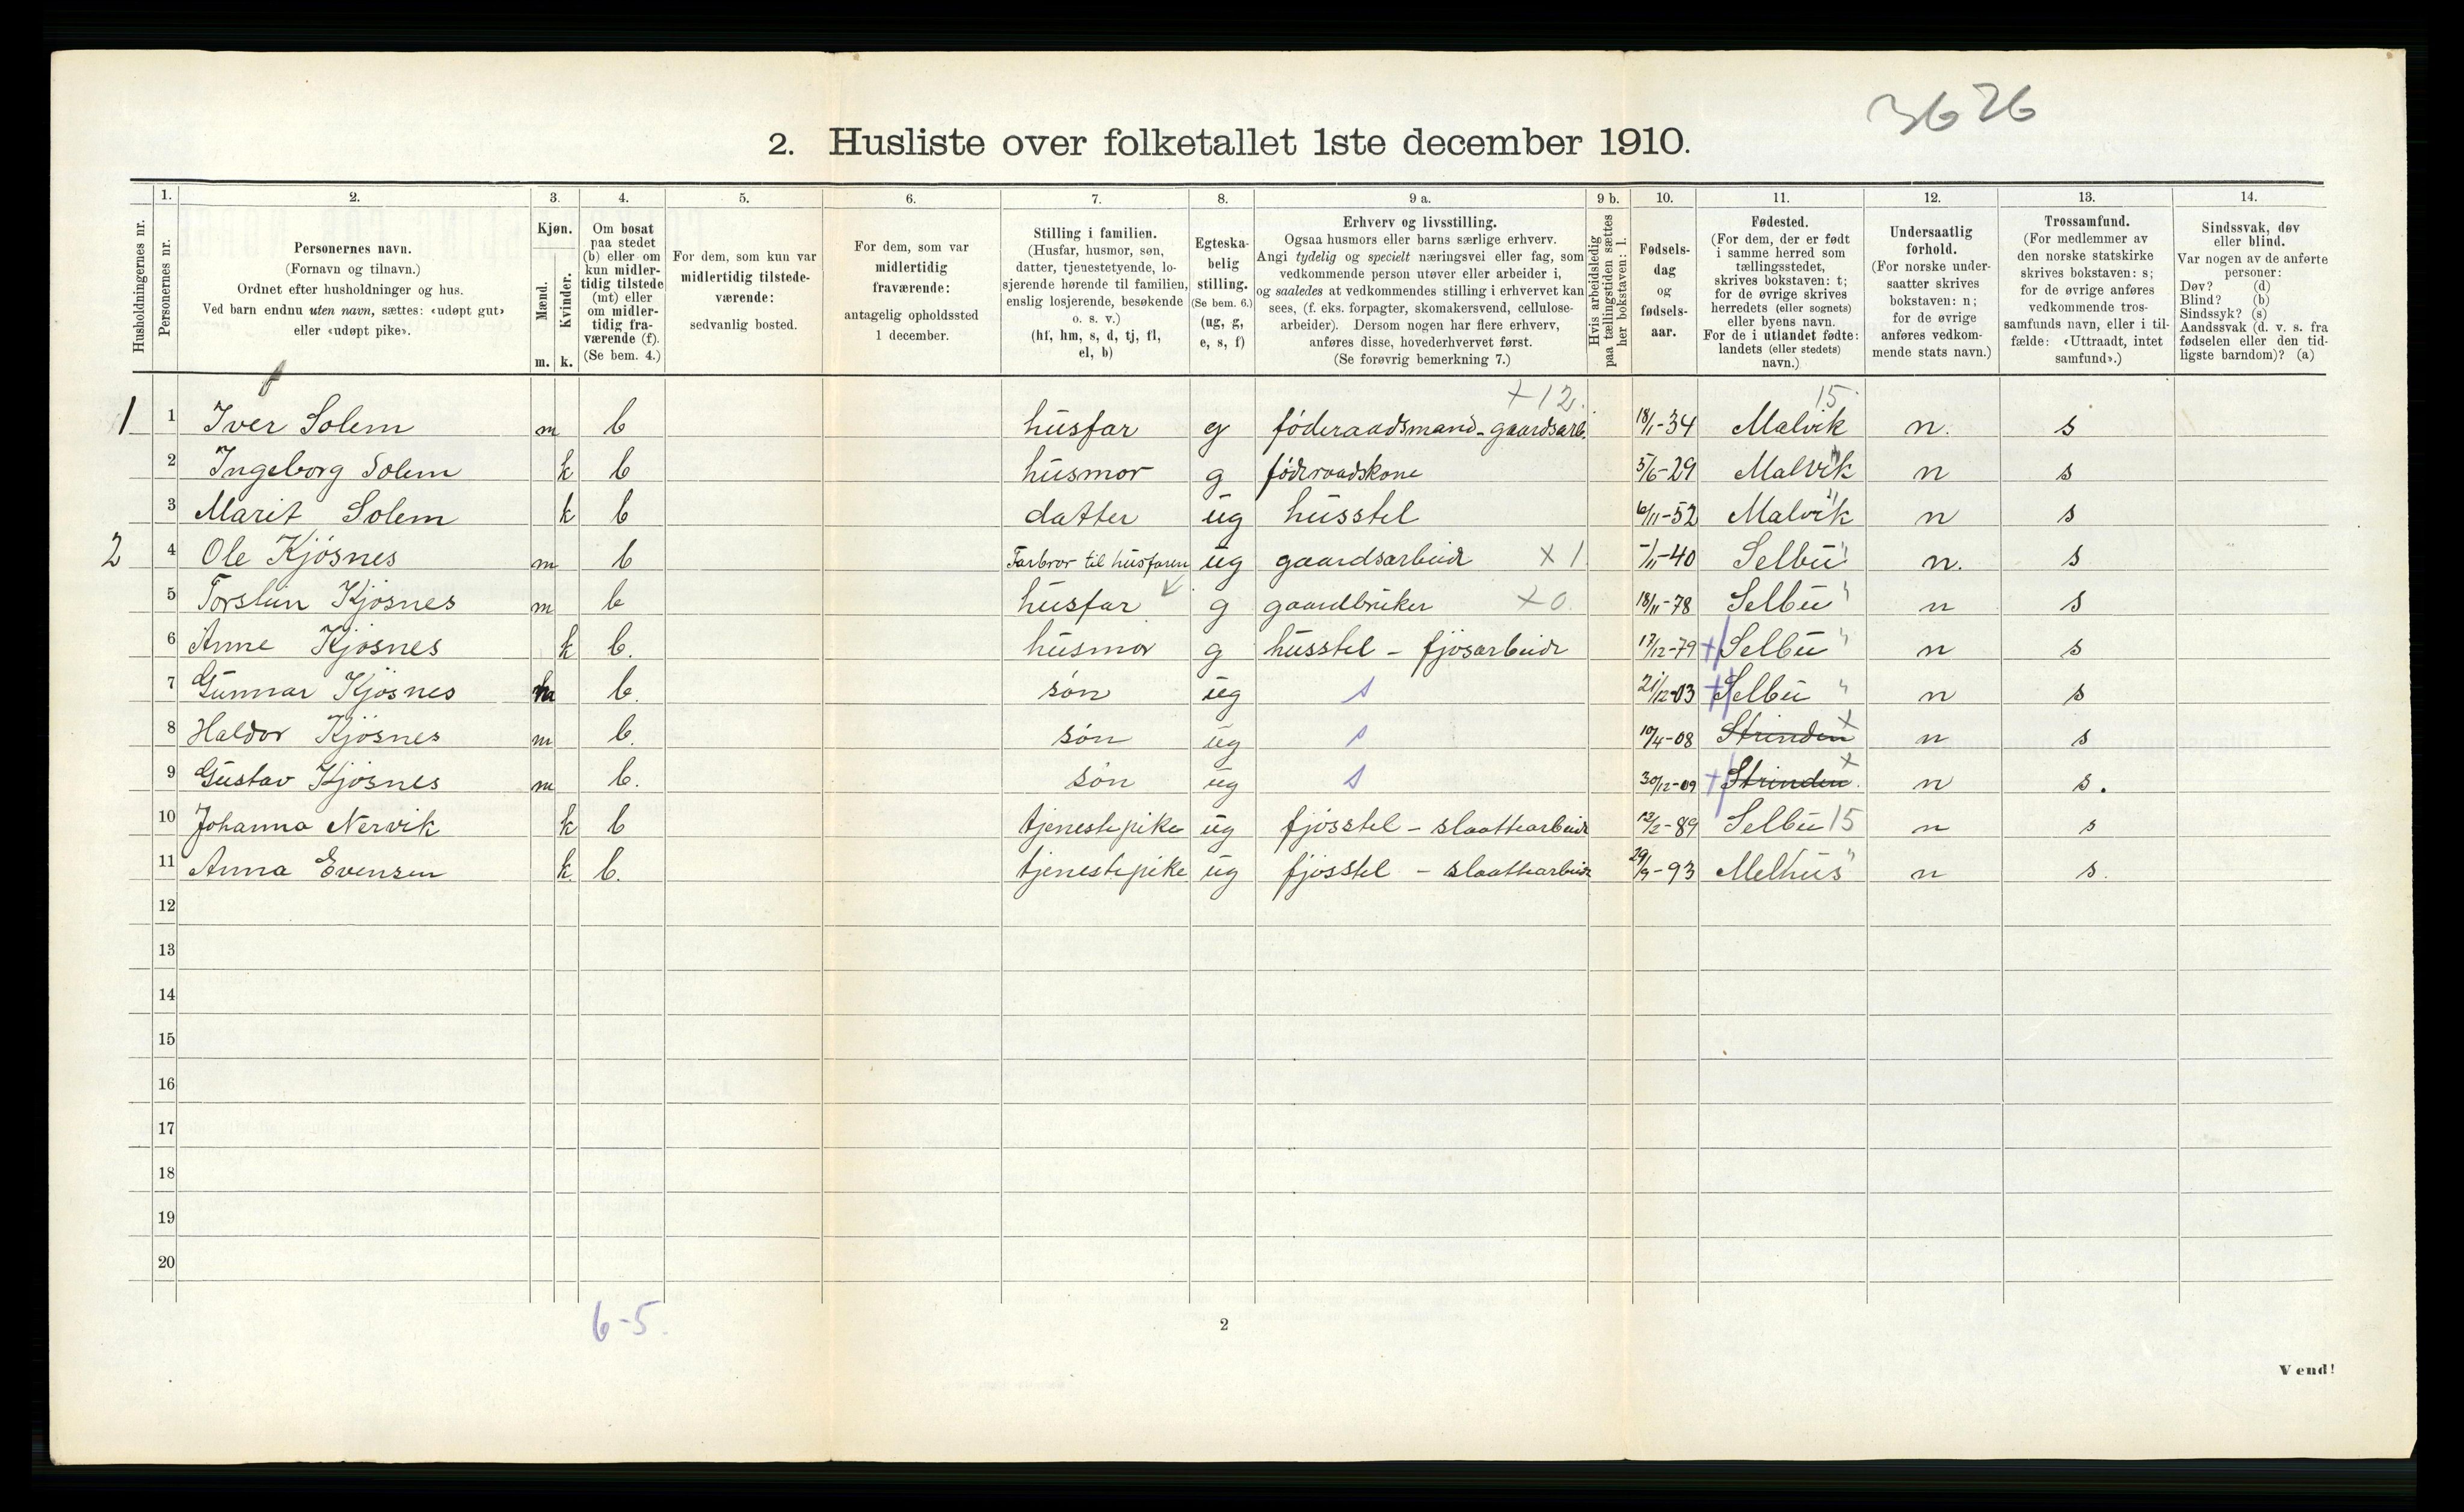 3626
2. Husliste over folketallet 1ste december 1910.
Husholdningernes nr.
1.
Personernes nr.
2.
Personernes navn.
(Fornavn og tilnavn.)
Ordnet efter husholdninger og hus.
Ved barn endnu uten navn, sættes: «udøpt gut»
eller «udøpt pike».
3.
Kjøn.
Mænd.
Kvinder.
m. k.
4.
Om bosat
paa stedet
(b) eller om
kun midler-
tidig tilstede
(mt) eller
om midler-
tidig fra-
værende (f).
(Se bem. 4.)
5.
For dem, som kun var
midlertidig tilstede-
værende:
sedvanlig bosted.
6.
For dem, som var
midlertidig
fraværende:
antagelig opholdssted
1 december.
7.
Stilling i familien.
(Husfar, husmor, søn,
datter, tjenestetyende, lo-
sjerende hørende til familien,
enslig losjerende, besøkende
o. s. v.)
(hf, hm, s, d, tj, fl,
el, b)
8.
Egteska-
belig
stilling.
(Se bem. 6.)
(ug, g,
e, s, f)
9 a.
Erhverv og livsstilling.
Ogsaa husmors eller barns særlige erhverv.
Angi tydelig og specielt næringsvei eller fag, som
vedkommende person utøver eller arbeider i,
og saaledes at vedkommendes stilling i erhvervet kan
sees, (f. eks. forpagter, skomakersvend, cellulose-
arbeider). Dersom nogen har flere erhverv,
anføres disse, hovederhvervet først.
(Se forøvrig bemerkning 7.)
9 b.
Hvis arbeidsledig
paa tællingstiden sættes
her bokstaven: l.
10.
Fødsels-
dag
og
fødsels-
aar.
11.
Fødested.
(For dem, der er født
i samme herred som
tællingsstedet,
skrives bokstaven: t;
for de øvrige skrives
herredets (eller sognets)
eller byens navn.
For de i utlandet fødte:
landets (eller stedets)
navn.)
12.
Undersaatlig
forhold.
(For norske under-
saatter skrives
bokstaven: n;
for de øvrige
anføres vedkom-
mende stats navn.)
13.
Trossamfund.
(For medlemmer av
den norske statskirke
skrives bokstaven: s;
for de øvrige anføres
vedkommende tros-
samfunds navn, eller i til-
fælde: «Uttraadt, intet
samfund».)
14.
Sindssvak, døv
eller blind.
Var nogen av de anførte
personer:
Døv? (d)
Blind? (b)
Sindssyk? (s)
Aandssvak (d. v. s. fra
fødselen eller den tid-
ligste barndom)? (a)
+12. 15
1 1 Iver Solem m b husfar g føderaadsmand - gaardsarb. 18/1-34 Malvik n. s
2 Ingeborg Solem k b husmor g føderaadskone 5/6-29 Malvik " n s
3 Marit Solem k b datter ug husstel 6/11-52 Malvik " n s
2 4 Ole Kjøsnes m b Farbror til husfaren ug gaardsarbeide x 1 -/11-40 Selbu " n. s
5 Torstein Kjøsnes m b husfar g gaardbruker x0. 18/11-78 Selbu " n s
6 Anne Kjøsnes k b. husmor g husstel - fjøsarbeide 17/12-79 + Selbu " n s
7 Gunnar Kjøsnes m b. søn ug s 21/12-03 + Selbu " n s
8 Haldor Kjøsnes m b. søn ug s 10/4-08 Strinden x n s
9 Gustav Kjøsnes m b. søn ug s 30/12-09 + Strinden. x n s.
10 Johanna Nervik k b tjenestepike ug fjøsstel - slaattearbeide 12/2-89 Selbu 15 n s
11 Anna Evensen k. b. tjenestepike ug fjøsstel - slaattearbeide 29/9-93 Melhus " n s.
12
13
14
15
16
17
18
19
20
6-5.
2
Vend!